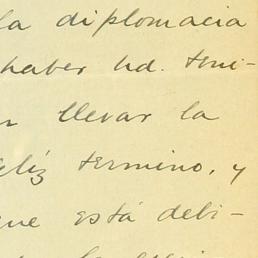 la diplomacia
haber Ud. teni-
llevar la
feliz termino, y
que está debi-